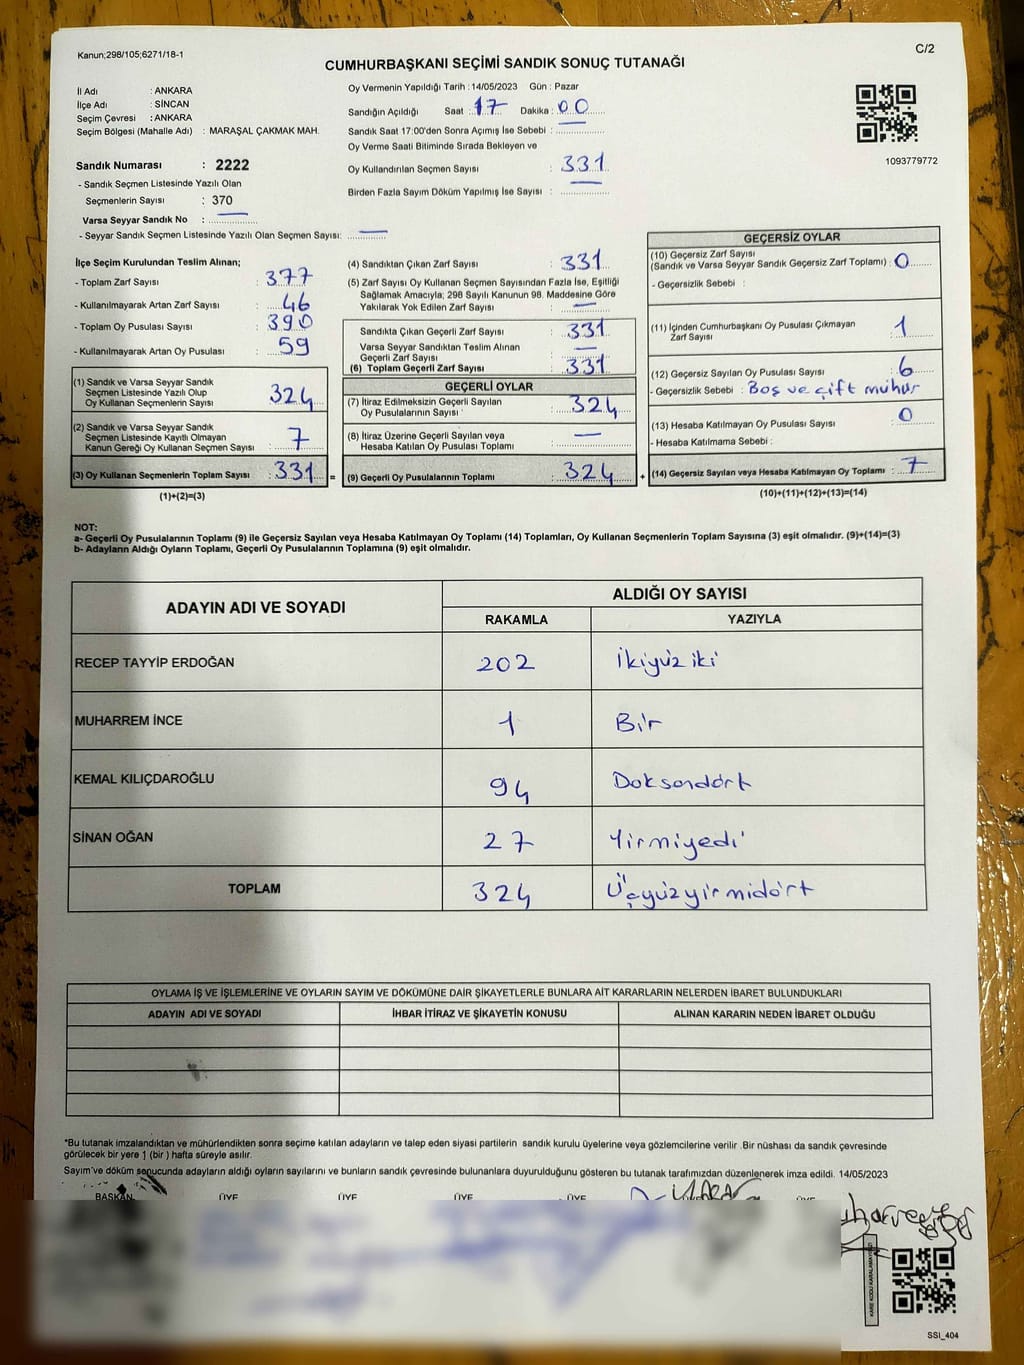 Kanun;298/105;6271/18-1
C/2
CUMHURBAŞKANI SEÇİMİ SANDIK SONUÇ TUTANAĞI
İl Adı : ANKARA
İlçe Adı : SİNCAN
Seçim Çevresi : ANKARA
Seçim Bölgesi (Mahalle Adı) : MARAŞAL ÇAKMAK MAH.
Oy Vermenin Yapıldığı Tarih : 14/05/2023 Gün : Pazar
Sandığın Açıldığı Saat : 17 Dakika : 00
Sandık Saat 17:00'den Sonra Açımış İse Sebebi :
Oy Verme Saati Bitiminde Sırada Bekleyen ve
Oy Kullandırılan Seçmen Sayısı : 331
Birden Fazla Sayım Döküm Yapılmış İse Sayısı :
1093779772
Sandık Numarası : 2222
- Sandık Seçmen Listesinde Yazılı Olan
Seçmenlerin Sayısı : 370
Varsa Seyyar Sandık No : —
- Seyyar Sandık Seçmen Listesinde Yazılı Olan Seçmen Sayısı: —
İlçe Seçim Kurulundan Teslim Alınan;
- Toplam Zarf Sayısı : 377
- Kullanılmayarak Artan Zarf Sayısı : 46
- Toplam Oy Pusulası Sayısı : 390
- Kullanılmayarak Artan Oy Pusulası : 59
(1) Sandık ve Varsa Seyyar Sandık
Seçmen Listesinde Yazılı Olup
Oy Kullanan Seçmenlerin Sayısı : 324
(2) Sandık ve Varsa Seyyar Sandık
Seçmen Listesinde Kayıtlı Olmayan
Kanun Gereği Oy Kullanan Seçmen Sayısı : 7
(3) Oy Kullanan Seçmenlerin Toplam Sayısı : 331 =
(1)+(2)=(3)
(4) Sandıktan Çıkan Zarf Sayısı : 331
(5) Zarf Sayısı Oy Kullanan Seçmen Sayısından Fazla İse, Eşitliği
Sağlamak Amacıyla; 298 Sayılı Kanunun 98. Maddesine Göre
Yakılarak Yok Edilen Zarf Sayısı : —
Sandıkta Çıkan Geçerli Zarf Sayısı : 331
Varsa Seyyar Sandıktan Teslim Alınan
Geçerli Zarf Sayısı : —
(6) Toplam Geçerli Zarf Sayısı : 331
GEÇERLİ OYLAR
(7) İtiraz Edilmeksizin Geçerli Sayılan
Oy Pusulalarının Sayısı : 324
(8) İtiraz Üzerine Geçerli Sayılan veya
Hesaba Katılan Oy Pusulası Toplamı : —
(9) Geçerli Oy Pusulalarının Toplamı : 324 +
GEÇERSİZ OYLAR
(10) Geçersiz Zarf Sayısı
(Sandık ve Varsa Seyyar Sandık Geçersiz Zarf Toplamı) : 0
- Geçersizlik Sebebi :
(11) İçinden Cumhurbaşkanı Oy Pusulası Çıkmayan
Zarf Sayısı : 1
(12) Geçersiz Sayılan Oy Pusulası Sayısı : 6
- Geçersizlik Sebebi : Boş ve çift mühür
(13) Hesaba Katılmayan Oy Pusulası Sayısı : 0
- Hesaba Katılmama Sebebi :
(14) Geçersiz Sayılan veya Hesaba Katılmayan Oy Toplamı : 7
(10)+(11)+(12)+(13)=(14)
NOT:
a- Geçerli Oy Pusulalarının Toplamı (9) ile Geçersiz Sayılan veya Hesaba Katılmayan Oy Toplamı (14) Toplamları, Oy Kullanan Seçmenlerin Toplam Sayısına (3) eşit olmalıdır. (9)+(14)=(3)
b- Adayların Aldığı Oyların Toplamı, Geçerli Oy Pusulalarının Toplamına (9) eşit olmalıdır.
ADAYIN ADI VE SOYADI
ALDIĞI OY SAYISI
RAKAMLA YAZIYLA
RECEP TAYYİP ERDOĞAN 202 İkiyüz iki
MUHARREM İNCE 1 Bir
KEMAL KILIÇDAROĞLU 94 Doksandört
SİNAN OĞAN 27 Yirmiyedi
TOPLAM 324 Üçyüzyirmidört
OYLAMA İŞ VE İŞLEMLERİNE VE OYLARIN SAYIM VE DÖKÜMÜNE DAİR ŞİKAYETLERLE BUNLARA AİT KARARLARIN NELERDEN İBARET BULUNDUKLARI
ADAYIN ADI VE SOYADI İHBAR İTİRAZ VE ŞİKAYETİN KONUSU ALINAN KARARIN NEDEN İBARET OLDUĞU
*Bu tutanak imzalandıktan ve mühürlendikten sonra seçime katılan adayların ve talep eden siyasi partilerin sandık kurulu üyelerine veya gözlemcilerine verilir .Bir nüshası da sandık çevresinde
görülecek bir yere 1 (bir) hafta süreyle asılır.
Sayım ve döküm sonucunda adayların aldığı oyların sayılarını ve bunların sandık çevresinde bulunanlara duyurulduğunu gösteren bu tutanak tarafımızdan düzenlenerek imza edildi. 14/05/2023
BAŞKAN ÜYE ÜYE ÜYE ÜYE ÜYE
SSI_404